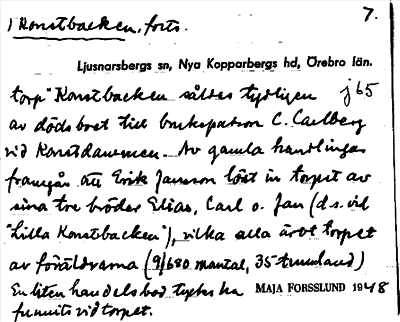 1 Konstbacken, forts. 7.
Ljusnarsbergs sn, Nya Kopparbergs hd, Örebro län.
torp "Konstbacken såldes tydligen j65
av dödsboet till brukspatron C. Carlberg
vid Konstdammen. Av gamla handlingar
framgår att Erik Jansson löst in torpet av
sina tre bröder Elias, Carl o. Jan (d.s. vid
"Lilla Konstbacken"), vilka alla ärvt torpet
av föräldrarna (9/680 mantal, 35 tunnland)
En liten handelsbod tyckes ha MAJA FORSSLUND 1948
funnits vid torpet.